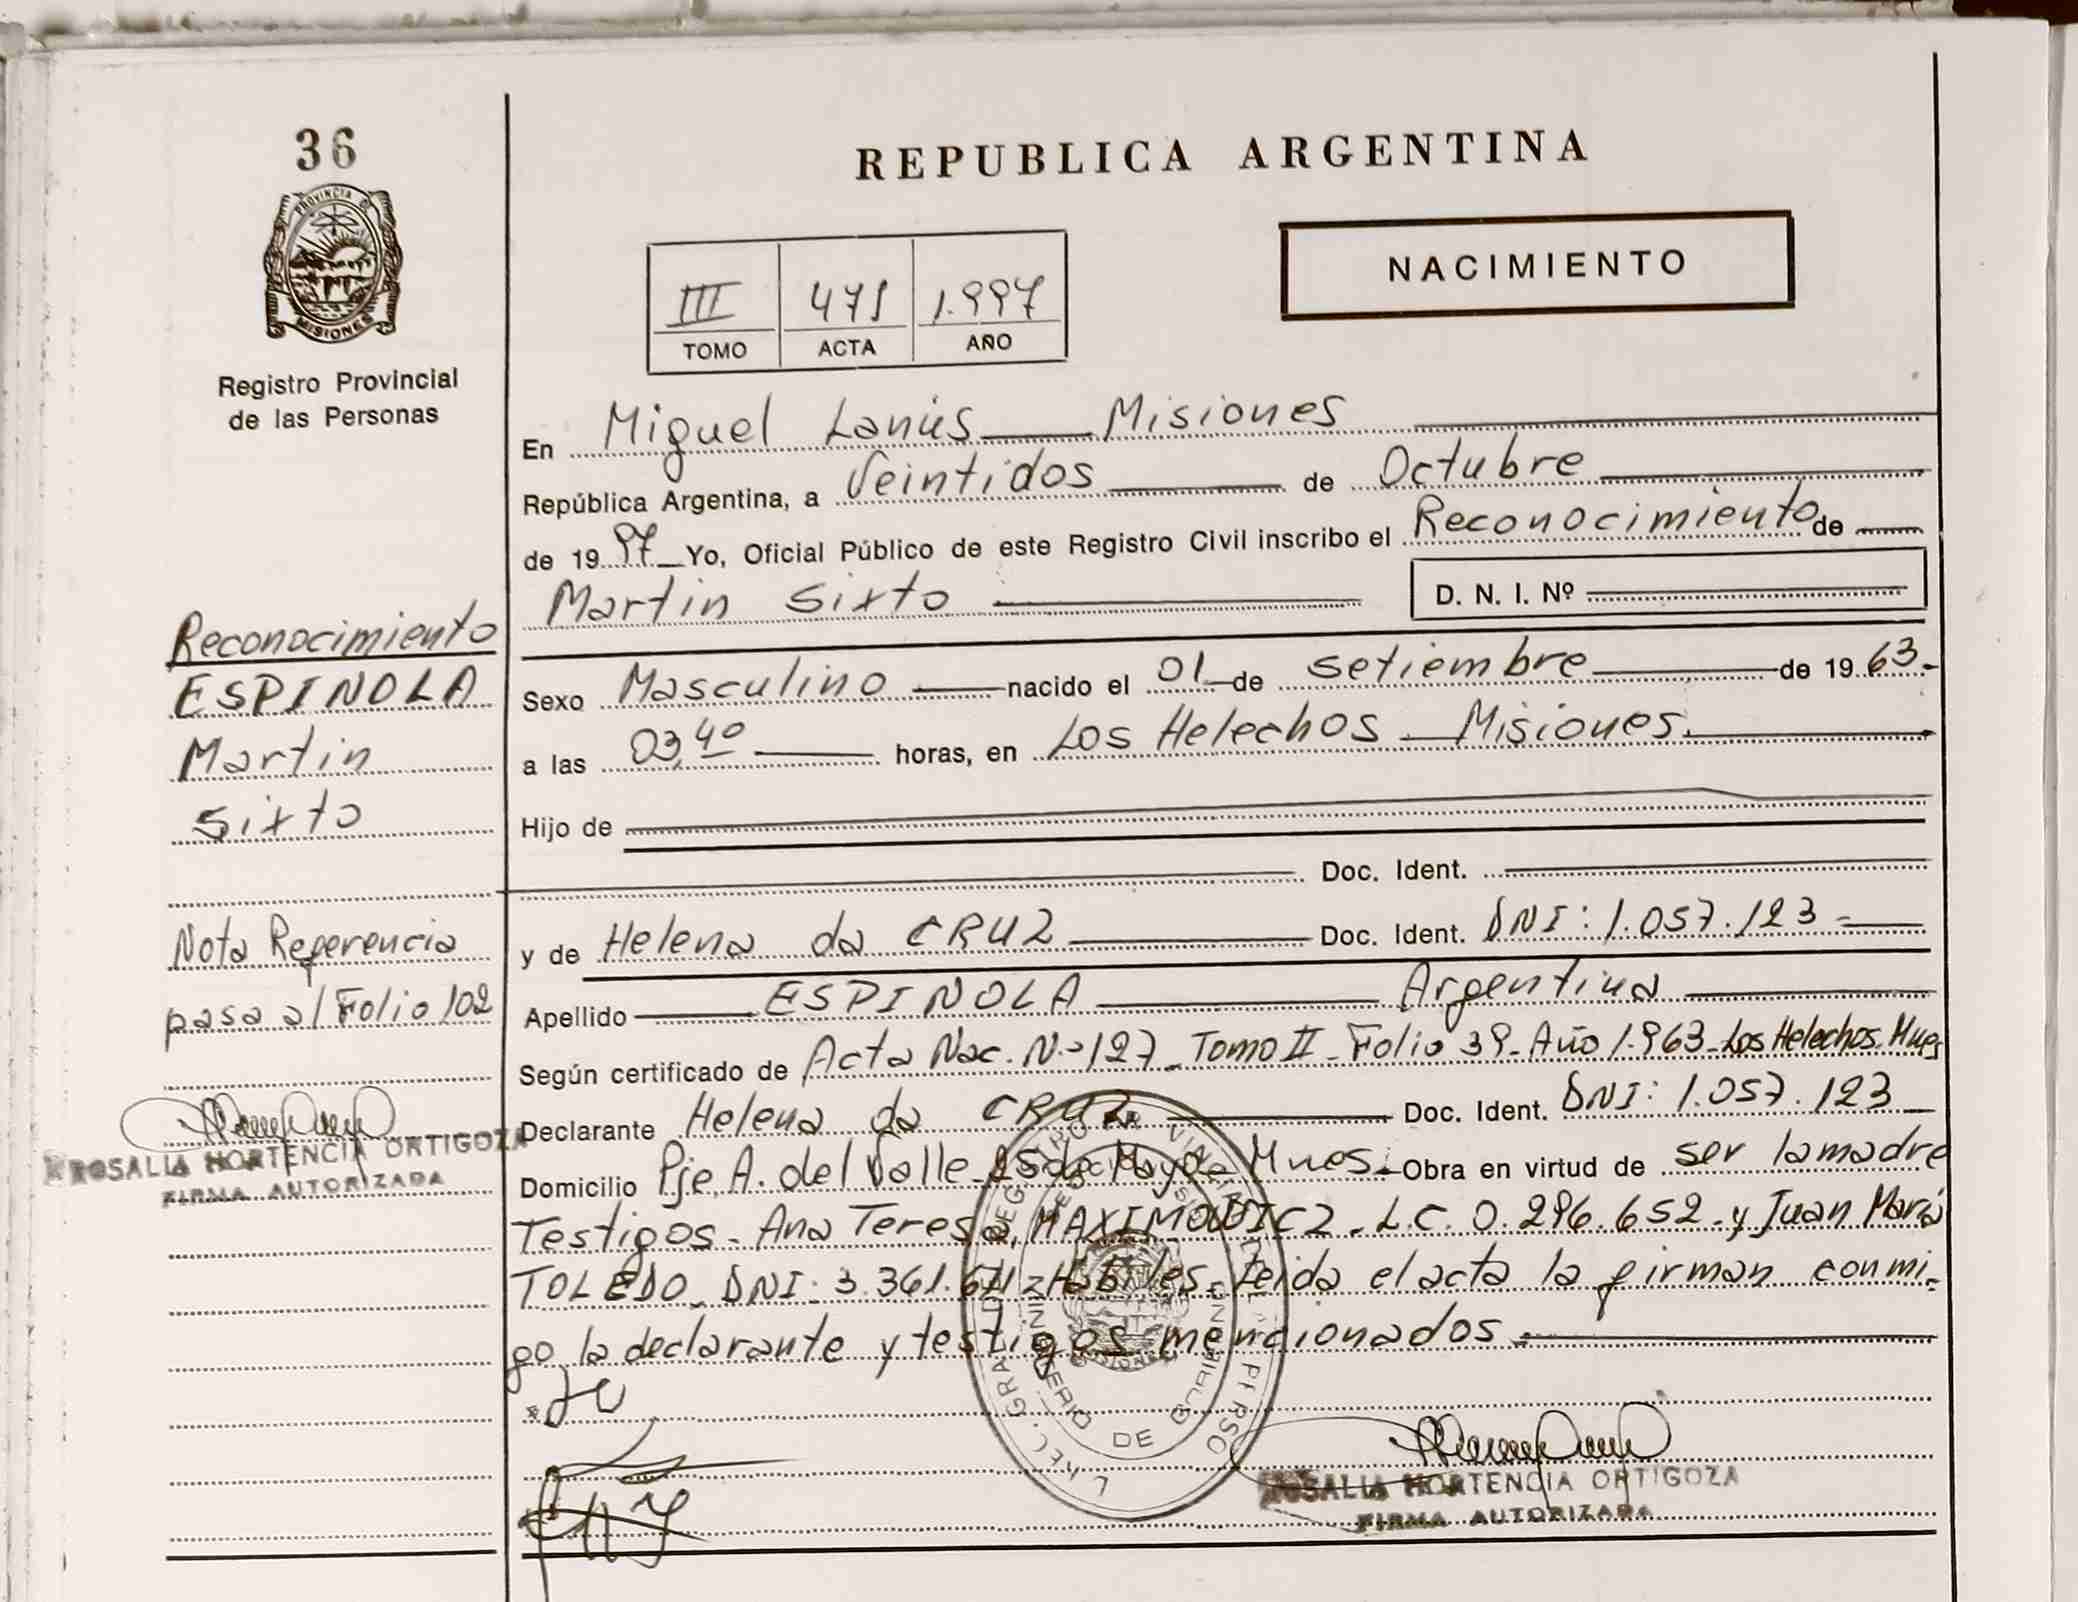 36
PROVINCIA DE
MISIONES
Registro Provincial
de las Personas
REPUBLICA ARGENTINA
III 471 1.997
TOMO ACTA AÑO
NACIMIENTO
En Miguel Lanús Misiones
República Argentina, a Veintidos de Octubre
de 19 97 Yo, Oficial Público de este Registro Civil inscribo el Reconocimiento de
Martin Sixto D. N. I. Nº
Sexo Masculino nacido el 01 de setiembre de 19 63.
a las 03,40 horas, en Los Helechos Misiones.
Hijo de
Doc. Ident.
y de Helena da CRUZ Doc. Ident. DNI: 1.057.123
Apellido ESPINOLA Argentina
Según certificado de Acta Nac. Nº 127 Tomo II Folio 39 Año 1.963 Los Helechos Mnes
Declarante Helena da CRUZ Doc. Ident. DNI: 1.057.123
Domicilio Pje. A. del Valle 25 de Mayo Mnes. Obra en virtud de ser la madre
Testigos. Ana Teresa MAXIMOWICZ. L.C. 0.296.652 y Juan María
TOLEDO DNI: 3.361.671 Habiles. Leida el acta la firman conmi-
go la declarante y testigos mencionados.
Reconocimiento
ESPINOLA
Martin
Sixto
Nota Referencia
pasa al Folio 102
ROSALIA HORTENCIA ORTIGOZA
FIRMA AUTORIZADA
ROSALIA HORTENCIA ORTIGOZA
FIRMA AUTORIZADA